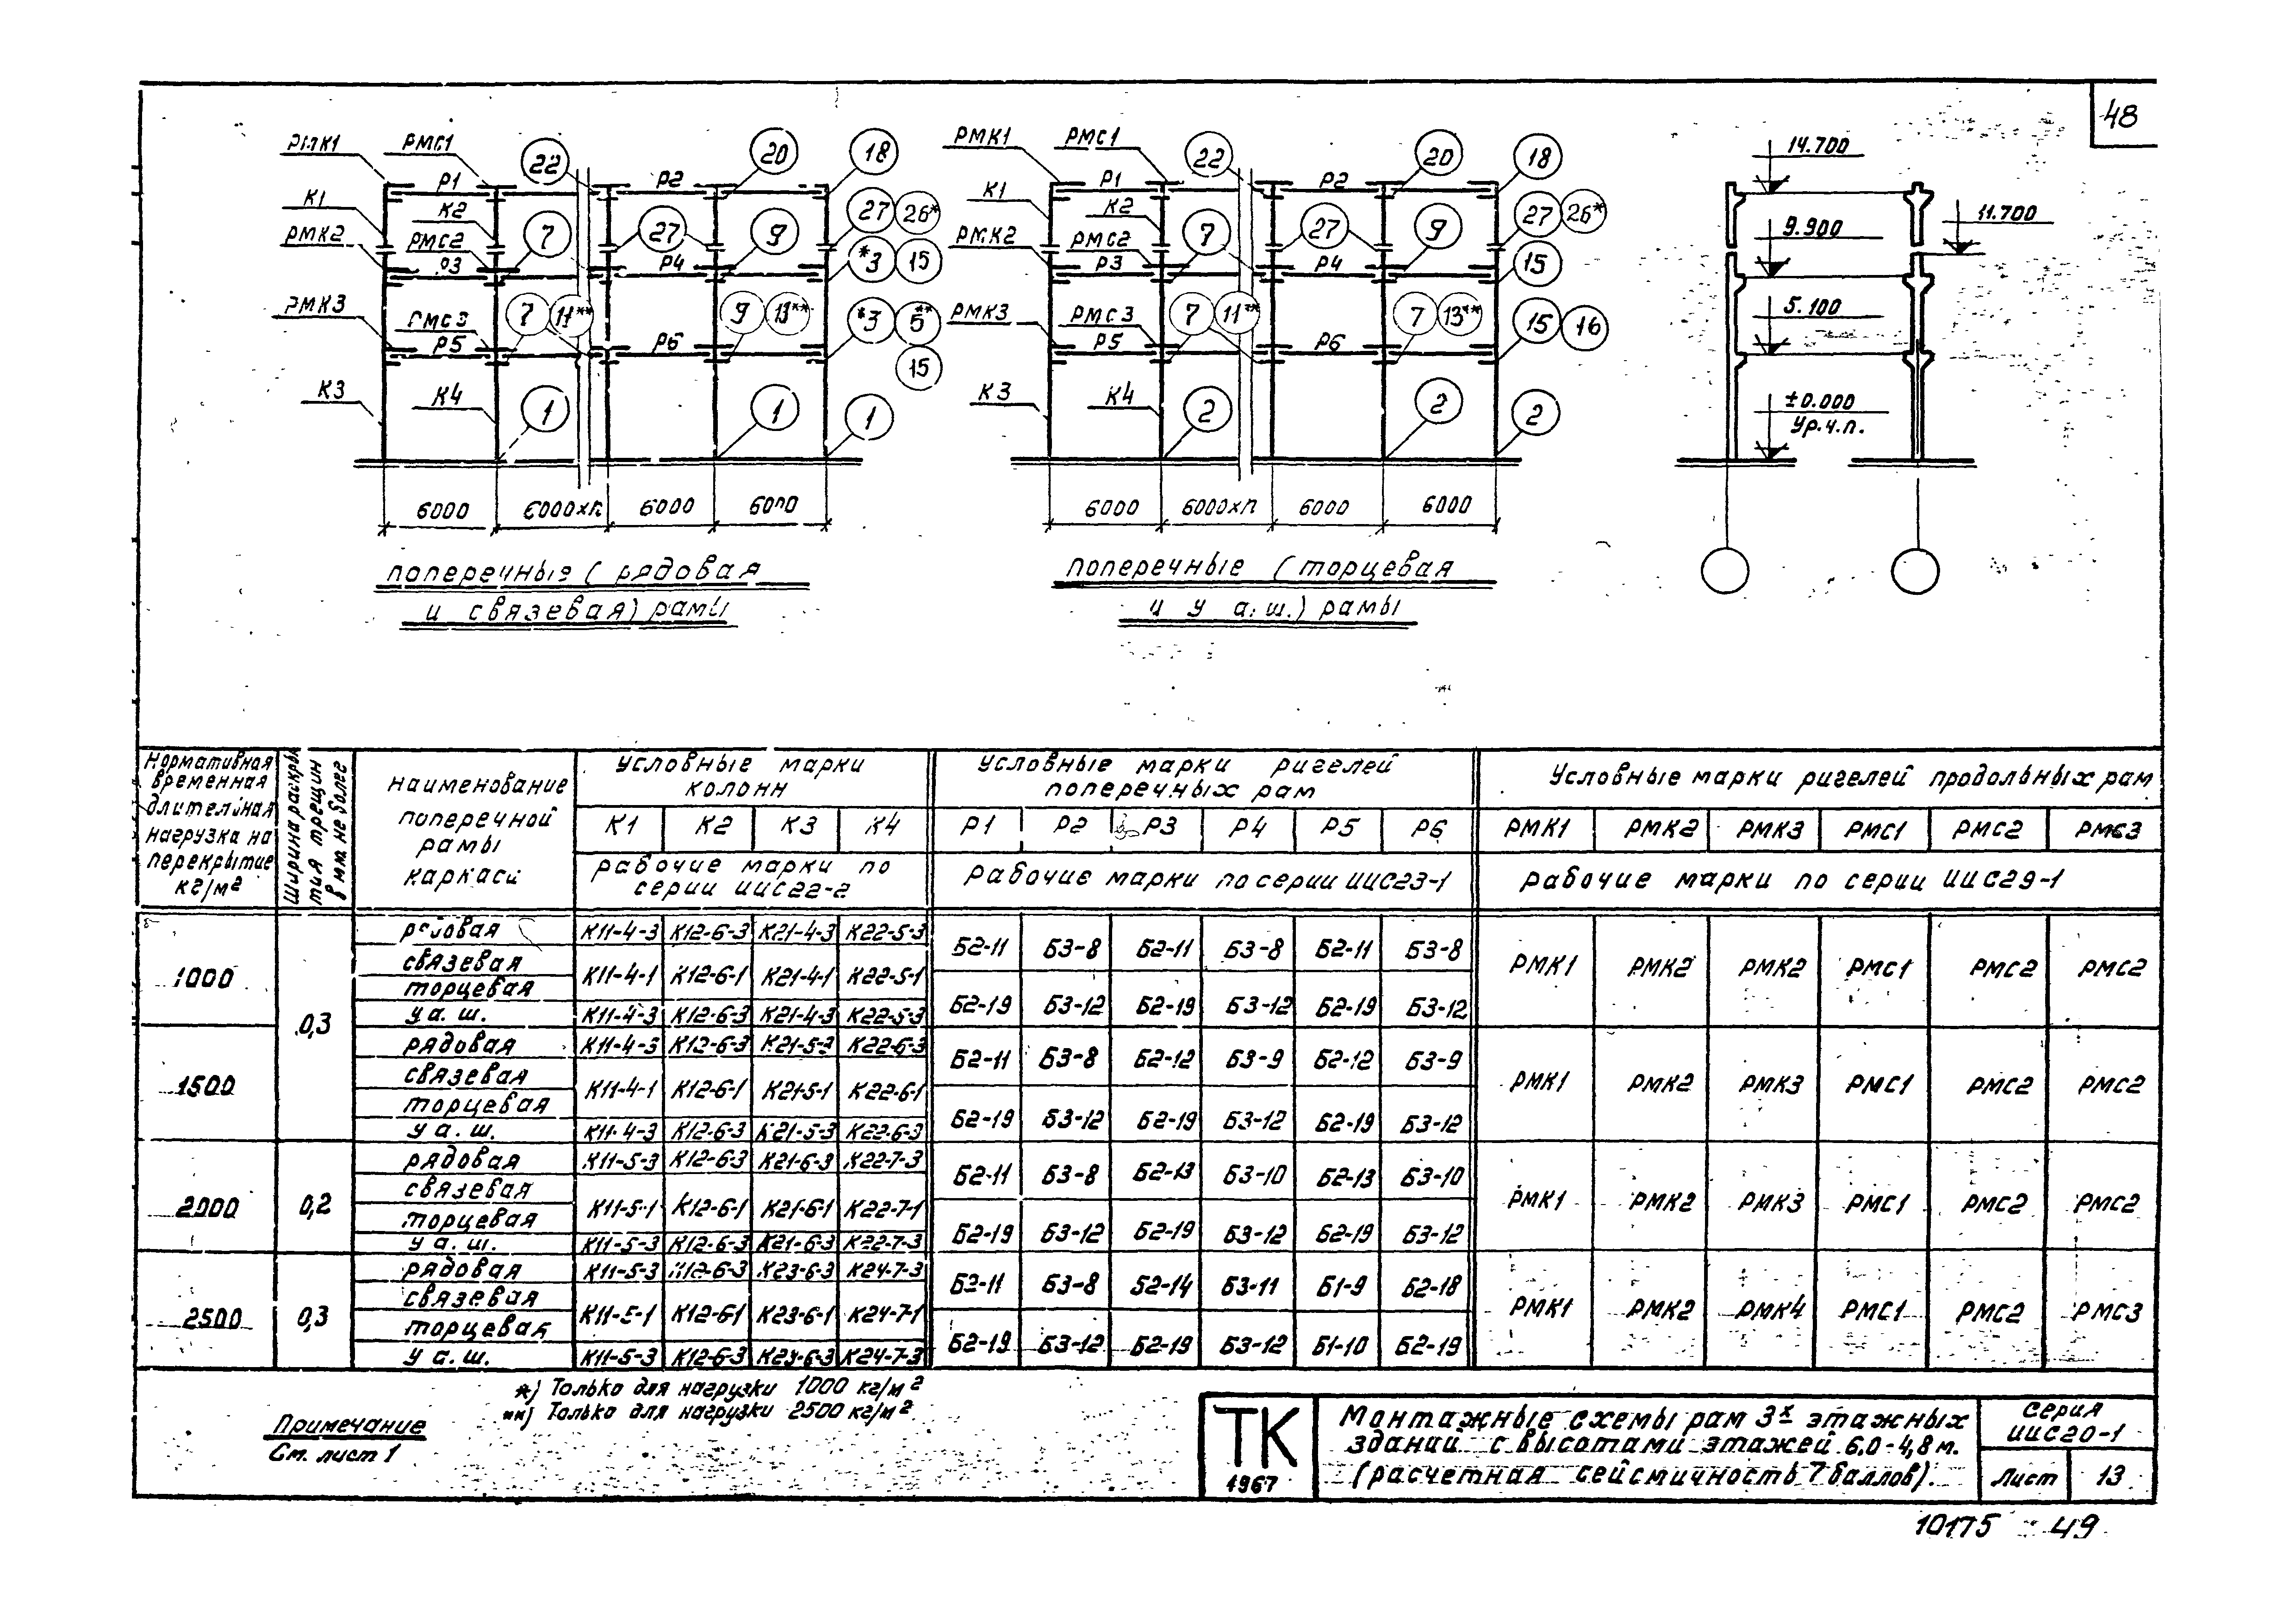 48
РМК1 РМС1 22 20 18
К1 Р1 Р2
К2 27 26*
РМК2 РМС2 7 27 9
Р3 Р4 *3 15
РМК3 РМС3 7 11** 9 13** *3 5**
Р5 Р6 15
К3 К4 1 1 1
6000 6000хп 6000 6000
поперечные (рядовая
и связевая) рамы
РМК1 РМС1 22 20 18
К1 Р1 Р2
К2 27 26*
РМК2 РМС2 7 27 9
Р3 Р4 15
РМК3 РМС3 7 11** 7 13** 15 16
Р5 Р6
К3 К4 2 2 2
6000 6000хп 6000 6000
поперечные (торцевая
и у а.ш.) рамы
14.700
11.700
9.900
5.100
±0.000
Ур.ч.п.
Нормативная временная длительная нагрузка на перекрытие кг/м²
Ширина раскрытия трещин в мм не более
Наименование поперечной рамы каркаса
Условные марки колонн
Условные марки ригелей поперечных рам
Условные марки ригелей продольных рам
К1 К2 К3 К4 Р1 Р2 Р3 Р4 Р5 Р6 РМК1 РМК2 РМК3 РМС1 РМС2 РМС3
Рабочие марки по серии ИИС22-2
Рабочие марки по серии ИИС23-1
Рабочие марки по серии ИИС29-1
1000 0,3
рядовая К11-4-3 К12-6-3 К21-4-3 К22-5-3
связевая
торцевая
К11-4-1 К12-6-1 К21-4-1 К22-5-1
у а. ш. К11-4-3 К12-6-3 К21-4-3 К22-5-3
Б2-11 Б3-8 Б2-11 Б3-8 Б2-11 Б3-8
Б2-19 Б3-12 Б2-19 Б3-12 Б2-19 Б3-12
РМК1 РМК2 РМК2 РМС1 РМС2 РМС2
1500
рядовая К11-4-3 К12-6-3 К21-5-3 К22-6-3
связевая
торцевая
К11-4-1 К12-6-1 К21-5-1 К22-6-1
у а. ш. К11-4-3 К12-6-3 К21-5-3 К22-6-3
Б2-11 Б3-8 Б2-12 Б3-9 Б2-12 Б3-9
Б2-19 Б3-12 Б2-19 Б3-12 Б2-19 Б3-12
РМК1 РМК2 РМК3 РМС1 РМС2 РМС2
2000 0,2
рядовая К11-5-3 К12-6-3 К21-6-3 К22-7-3
связевая
торцевая
К11-5-1 К12-6-1 К21-6-1 К22-7-1
у а. ш. К11-5-3 К12-6-3 К21-6-3 К22-7-3
Б2-11 Б3-8 Б2-13 Б3-10 Б2-13 Б3-10
Б2-19 Б3-12 Б2-19 Б3-12 Б2-19 Б3-12
РМК1 РМК2 РМК3 РМС1 РМС2 РМС2
2500 0,3
рядовая К11-5-3 К12-6-3 К23-6-3 К24-7-3
связевая
торцевая
К11-5-1 К12-6-1 К23-6-1 К24-7-1
у а. ш. К11-5-3 К12-6-3 К23-6-3 К24-7-3
Б2-11 Б3-8 Б2-14 Б3-11 Б1-9 Б2-18
Б2-19 Б3-12 Б2-19 Б3-12 Б1-10 Б2-19
РМК1 РМК2 РМК4 РМС1 РМС2 РМС3
*) Только для нагрузки 1000 кг/м²
**) Только для нагрузки 2500 кг/м²
Примечание
См. лист 1
ТК
1967
Монтажные схемы рам 3х этажных
зданий с высотами этажей 6.0-4,8 м.
(расчетная сейсмичность 7 баллов).
Серия
ИИС20-1
Лист 13
10175 49